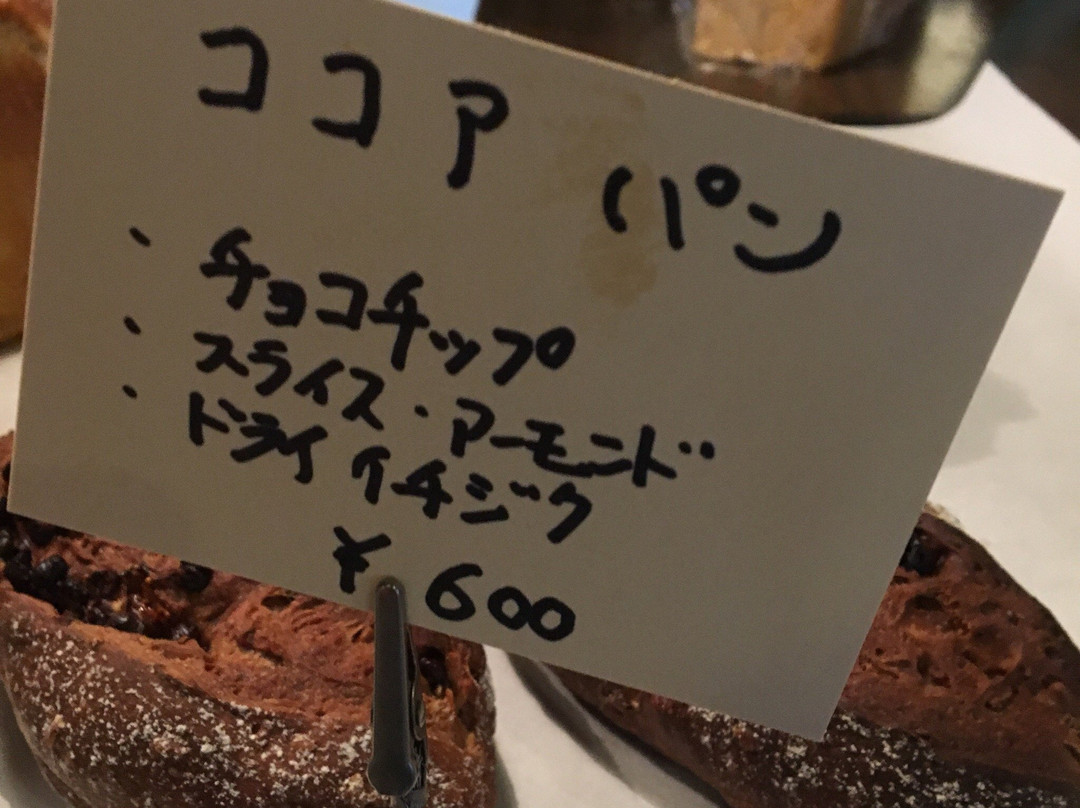 ココア パン
・チョコチップ
・スライス・アーモンド
・ドライイチジク
¥ 600